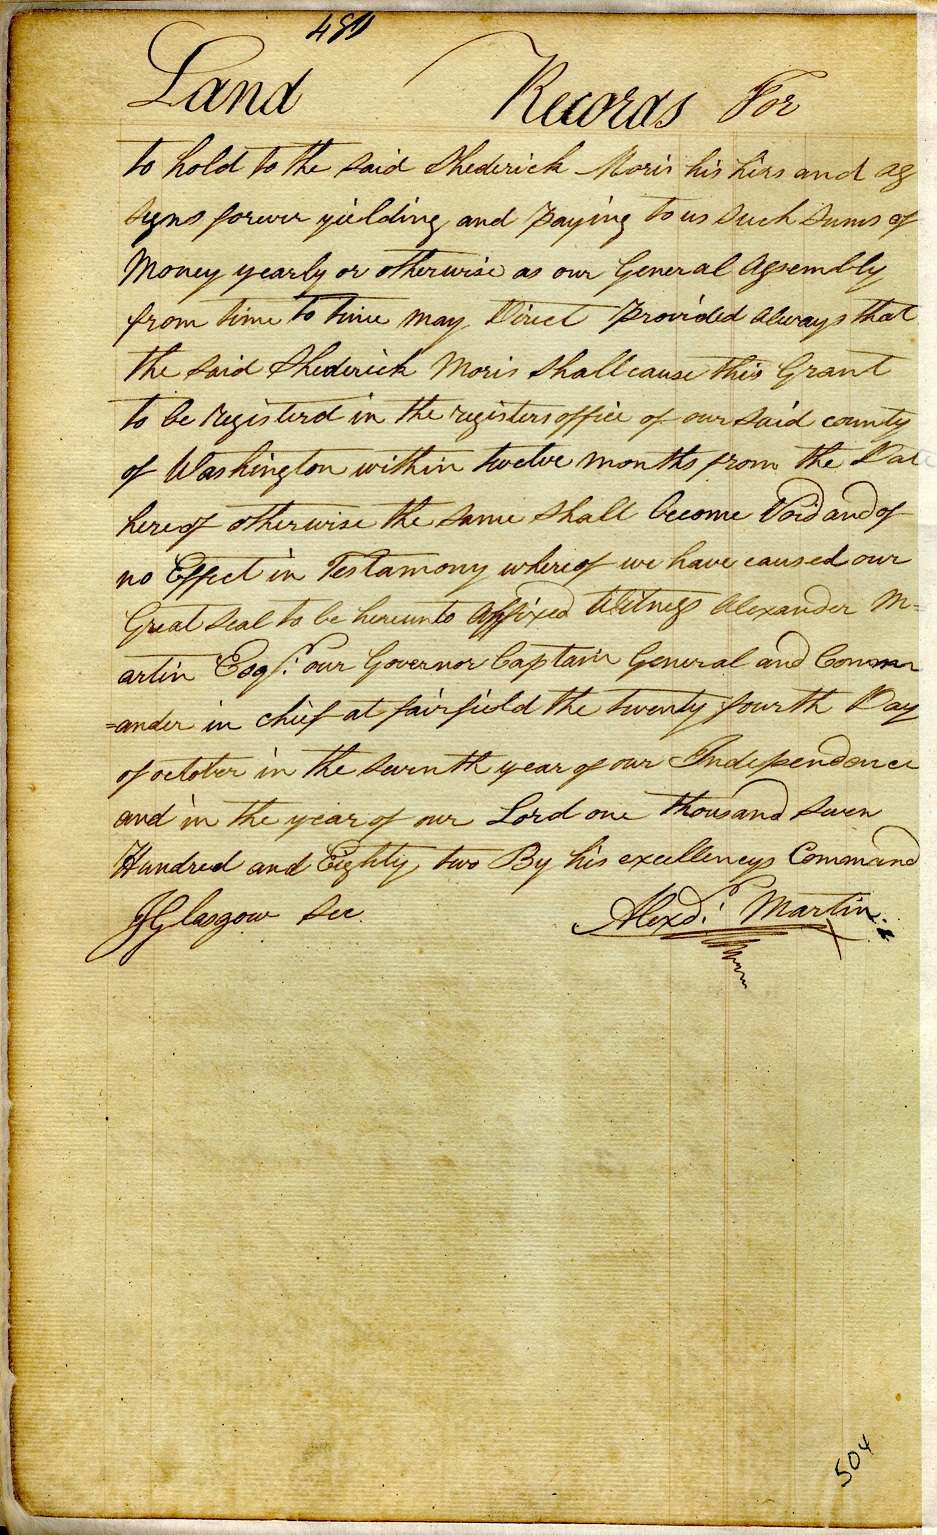 480
Land Records For
to hold to the said Shederick Moris his hirs and as
sygns forever yielding and Paying to us such sums of
Money yearly or otherwise as our General Assembly
from time to time may Direct Provided always that
the said Shederick Moris shall cause this Grant
to be registerd in the registers office of our said county
of Washington within twelve months from the Date
hereof otherwise the same shall become Void and of
no Effect in Testamony whereof we have caused our
Great seal to be hereunto Affixed Witness Alexander M=
artin Esqr. our Governor Captain General and Comm
=ander in chief at fairfield the twenty fourth Day
of october in the seventh year of our Independence
and in the year of our Lord one thousand seven
Hundred and Eighty two By his excellencys Command
JGlasgow Sec. Alexdr. Martin
504